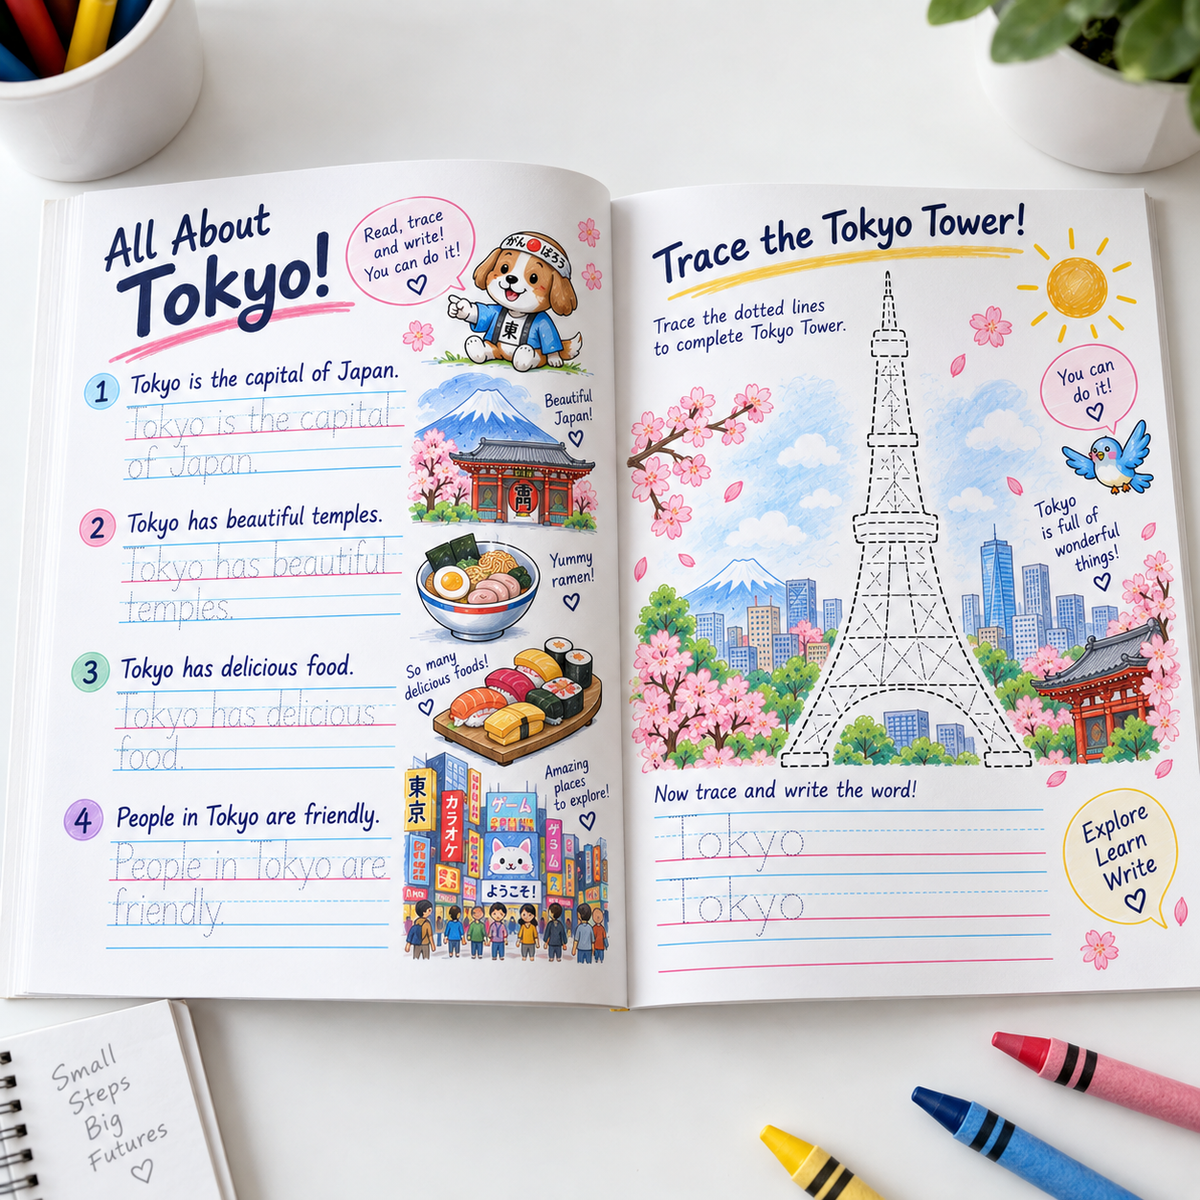 All About
Tokyo!
Read, trace
and write!
You can do it!
がん ばろう
東
1
Tokyo is the capital of Japan.
Tokyo is the capital
of Japan.
Beautiful
Japan!
2
Tokyo has beautiful temples.
Tokyo has beautiful
temples.
Yummy
ramen!
3
Tokyo has delicious food.
Tokyo has delicious
food.
So many
delicious foods!
4
People in Tokyo are friendly.
People in Tokyo are
friendly.
Amazing
places
to explore!
東京
カラオケ
ゲーム
ようこそ!
Trace the Tokyo Tower!
Trace the dotted lines
to complete Tokyo Tower.
You can
do it!
Tokyo
is full of
wonderful
things!
Now trace and write the word!
Tokyo
Tokyo
Explore
Learn
Write
Small
Steps
Big
Futures